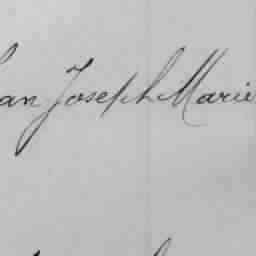 an Joseph Marie